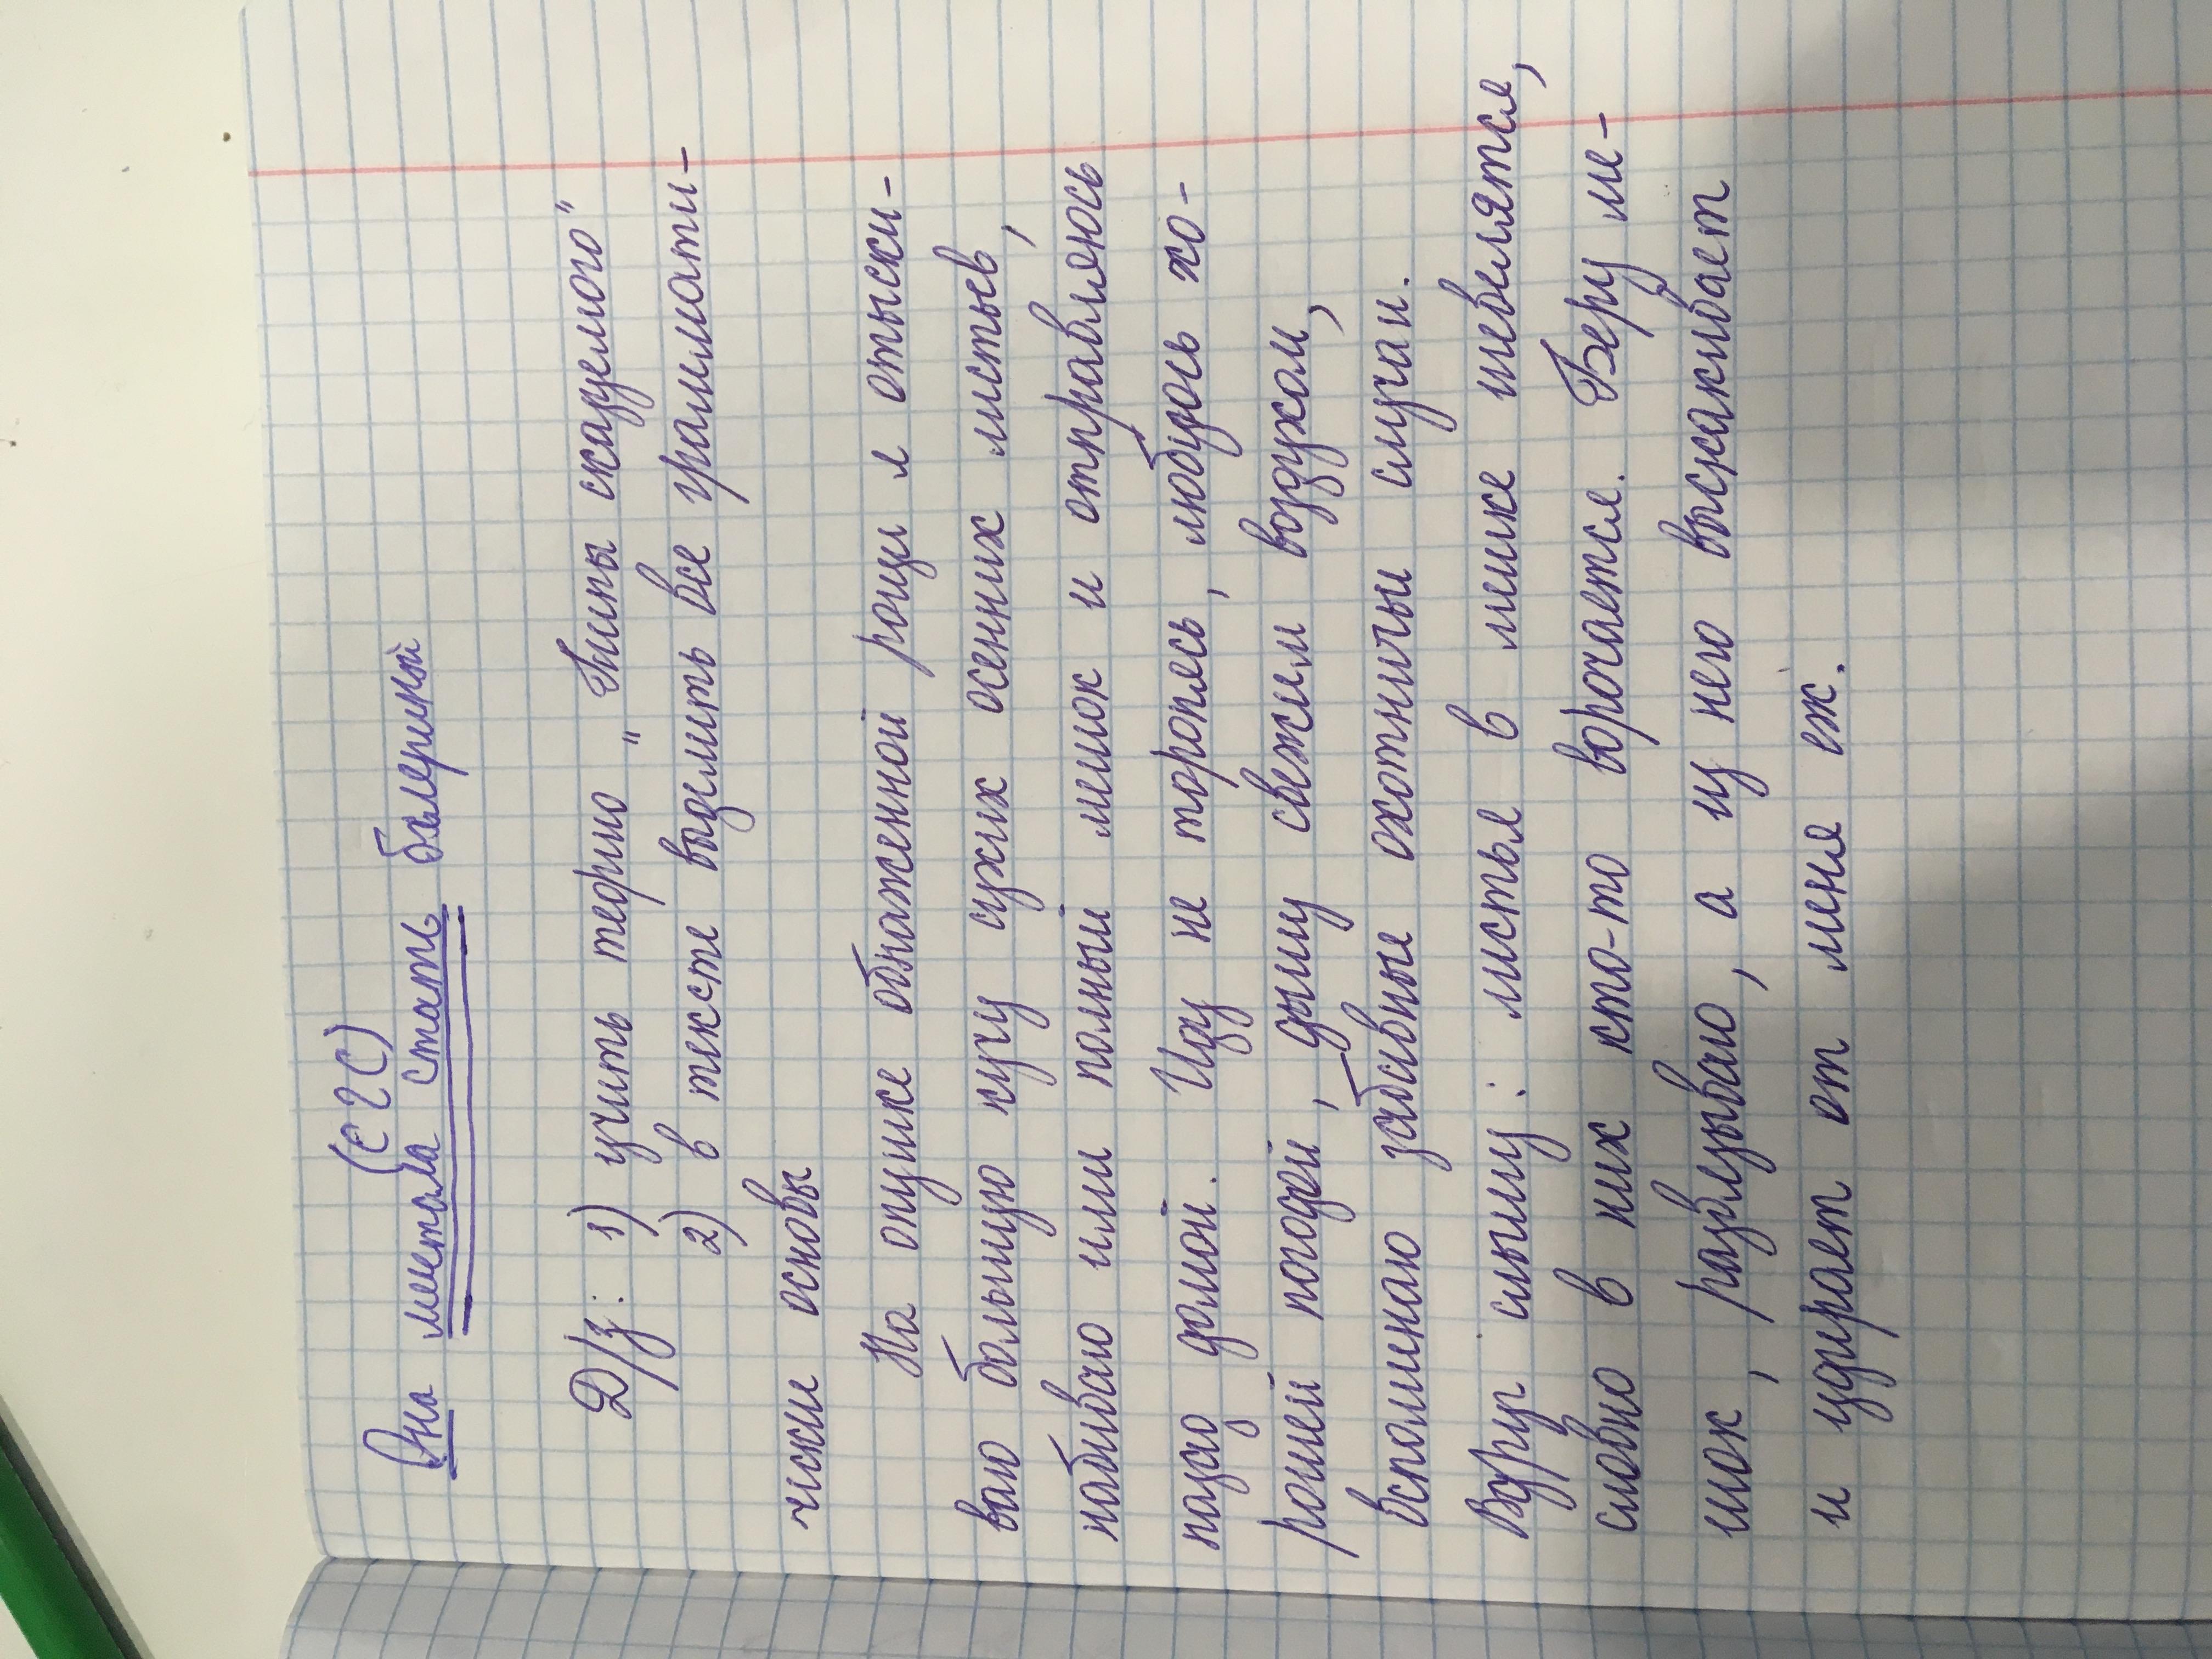 (СГС)
Она мечтала стать балериной
Д/з: 1) учить теорию "Типы сказуемого"
2) в тексте выделить все граммати-
чески основы
На опушке обнаженной рощи я отыски-
ваю большую кучу сухих осенних листьев,
набиваю ими полный мешок и отправляюсь
назад домой. Иду не торопясь, любуюсь хо-
рошей погодой, дышу свежим воздухом,
вспоминаю забавные охотничьи случаи.
Вдруг слышу: листья в мешке шевелятся,
словно в них кто-то ворочается. Беру ме-
шок, развязываю, а из него выскакивает
и удирает от меня еж.